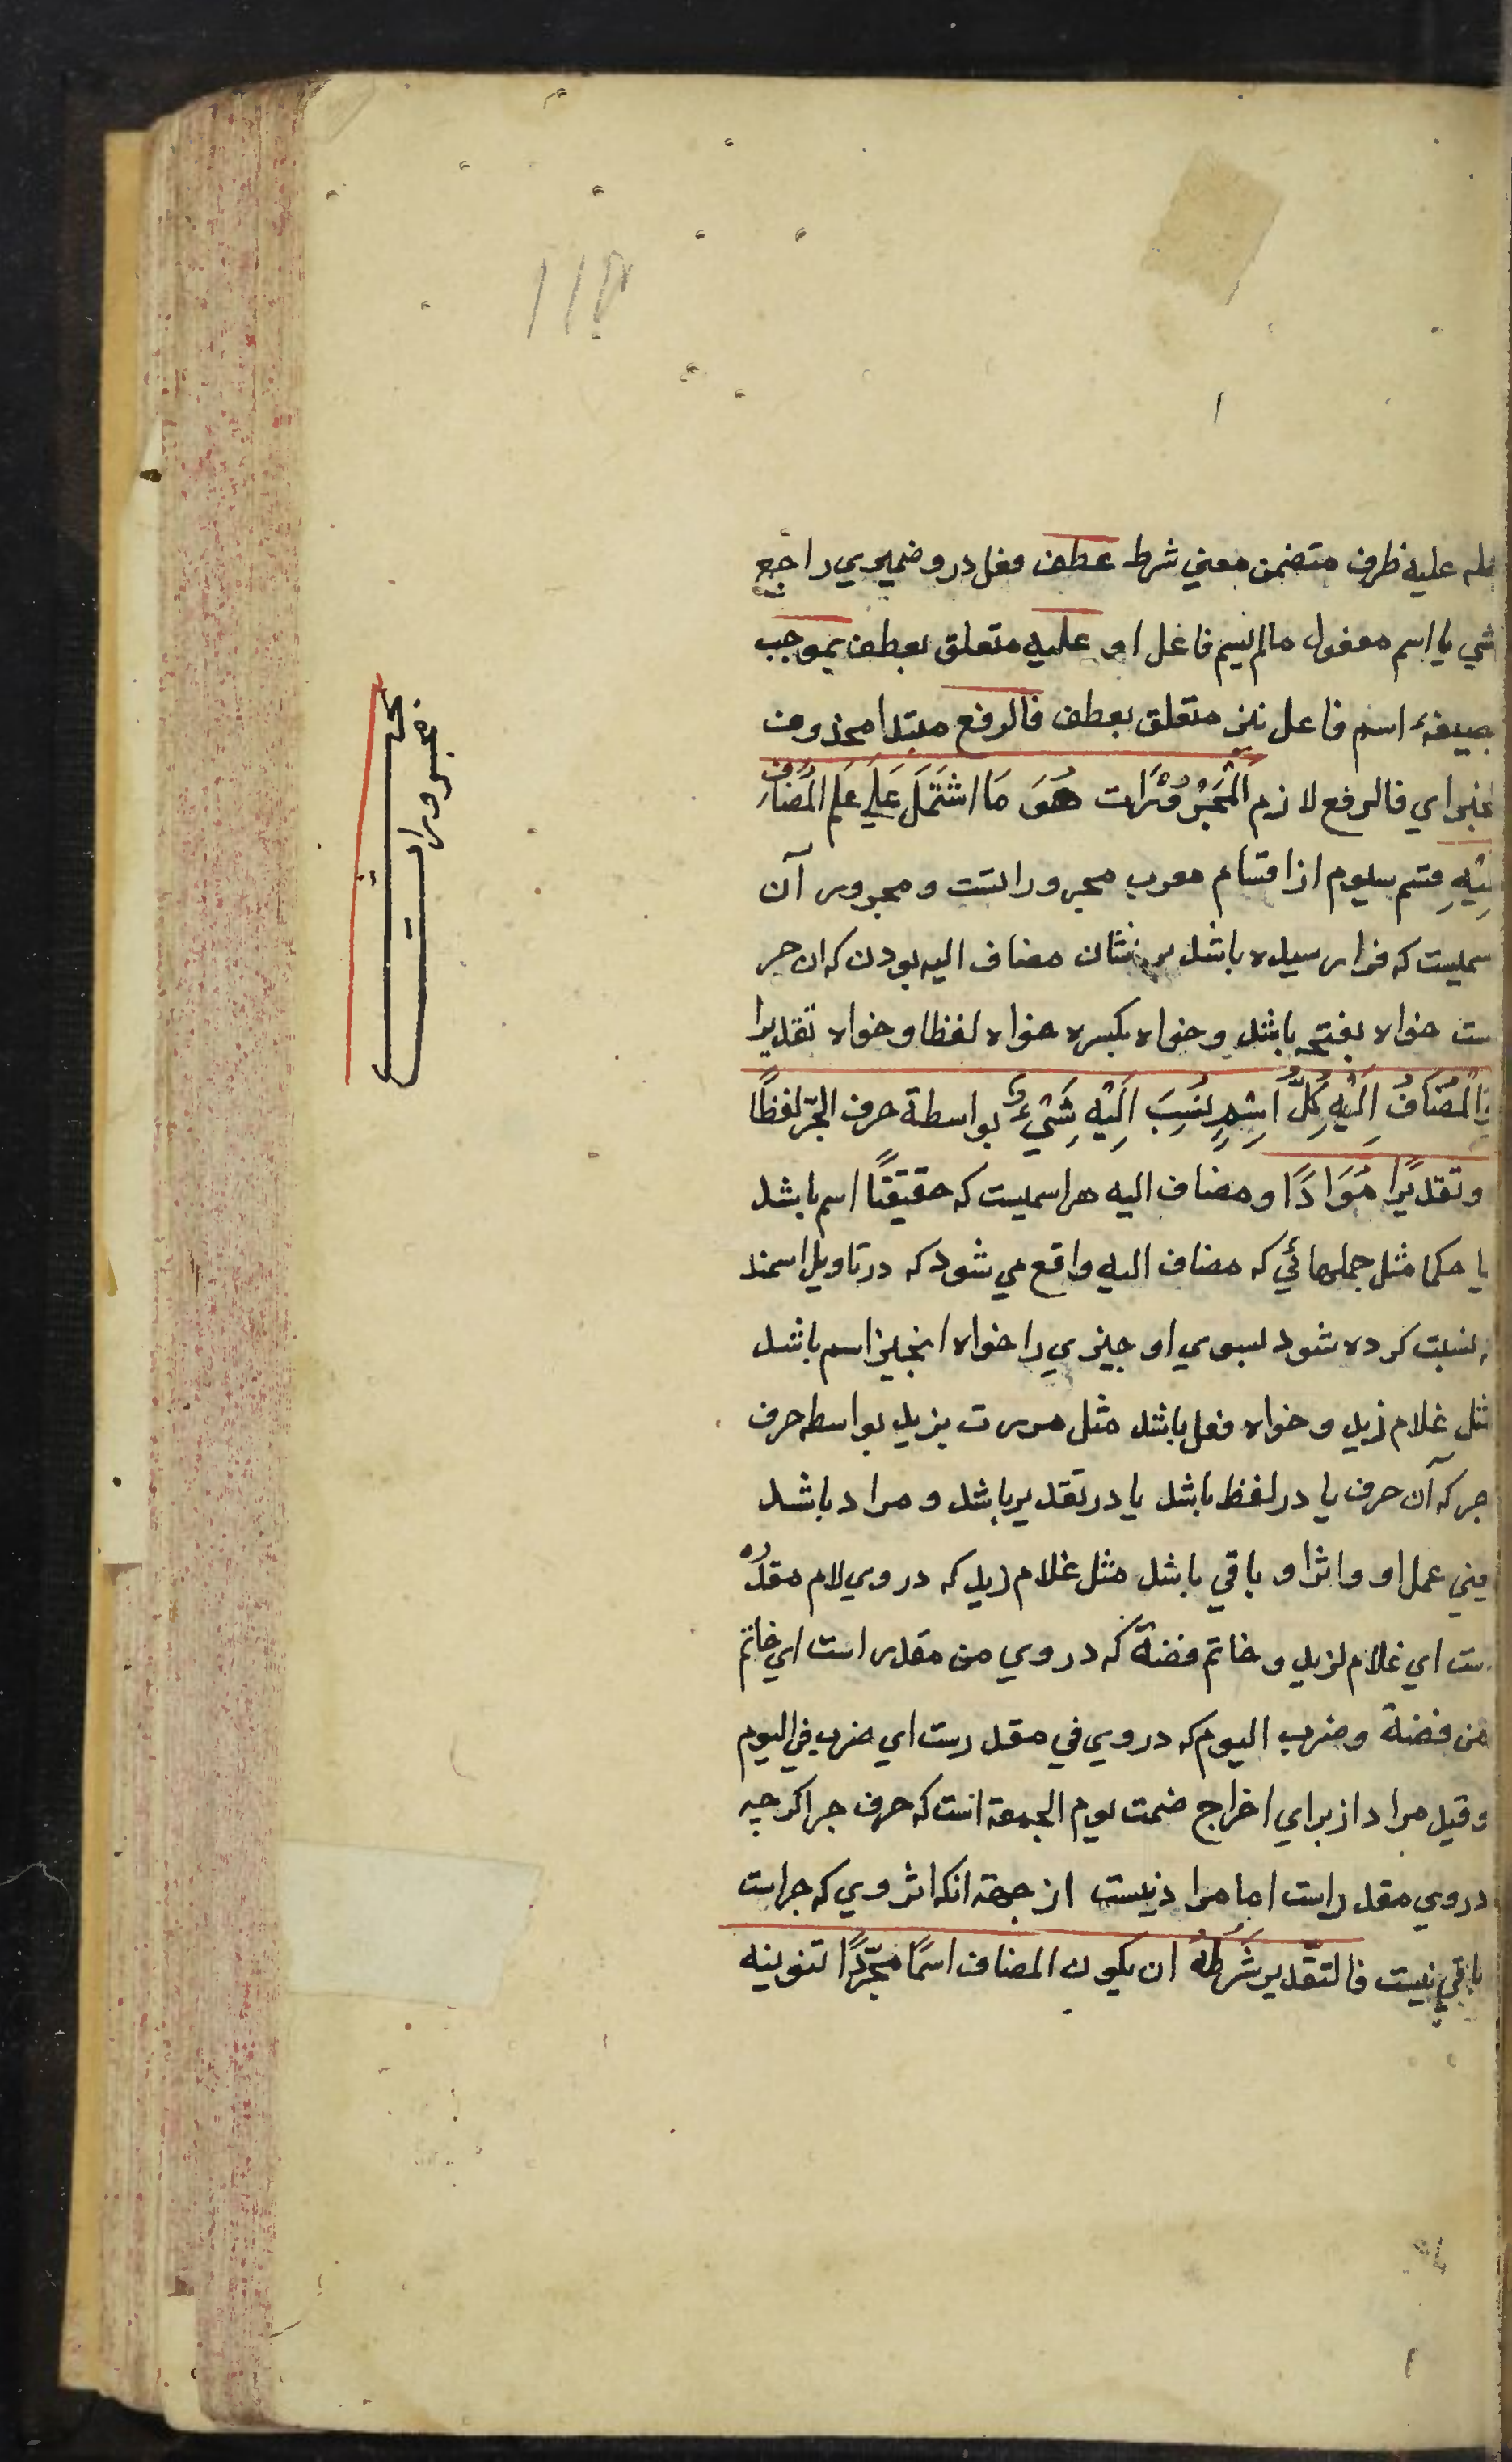 عليه ظرف متضمن معني شرط عطف فعل درو ضميري راجع
شي يا اسم مفعول مالم يسم فاعل او عليه متعلق بعطف بموجب
بصيغهٔ اسم فاعل نيز متعلق بعطف فالرفع مبتدا محذوف
الخبر اي فالرفع لازم اَلْمَجْرُوْرَات هُوَ مَا اشْتَمَلَ عَلَي عَلَمِ المُضَافِ
اِلَيْهِ قسم سيوم از اقسام معرب مجروراتست ومجرور آن
سميست كه فرا رسيده باشد بر نشان مضاف اليه بودن كه ان جر
ست خواه بفتحه باشد وخواه بكسره خواه لفظا وخواه تقديرا
وَالْمُضَافُ اِلَيْهِ كُلُّ اِسْمٍ نُسِبَ اِلَيْهِ شَيْءٌ بواسطة حرف الجرّ لفظًا
وتقديرًا مُرَادًا ومضاف اليه هر اسميست كه حقيقتًا اسم باشد
يا حكما مثل جملهائي كه مضاف اليه واقع مي شود كه در تاويل اسمند
نسبت كرده شود بسوي او چيزي را خواه انچيز اسم باشد
مثل غلام زيد وخواه فعل باشد مثل مررت بزيد بواسطه حرف
جر كه آن حرف يا در لفظ باشد يا در تقدير باشد ومراد باشد
يعني عمل او واثر او باقي باشد مثل غلام زيد كه در وي لام مقدر
ست اي غلام لزيد وخاتم فضة كه در وي من مقدر است اي خاتم
من فضة وضرب اليوم كه در وي في مقدرست اي ضرب في اليوم
وقيل مراد از براي اخراج صمت يوم الجمعة است كه حرف جر اكرچه
در وي مقدر است اما مراد نيست از جهة انكه اثر وي كه جر است
باقي نيست فالتّقدير شَرْطُهُ ان يكون المضاف اسمًا مجرّدًا تنوينه
بحث مجرورات